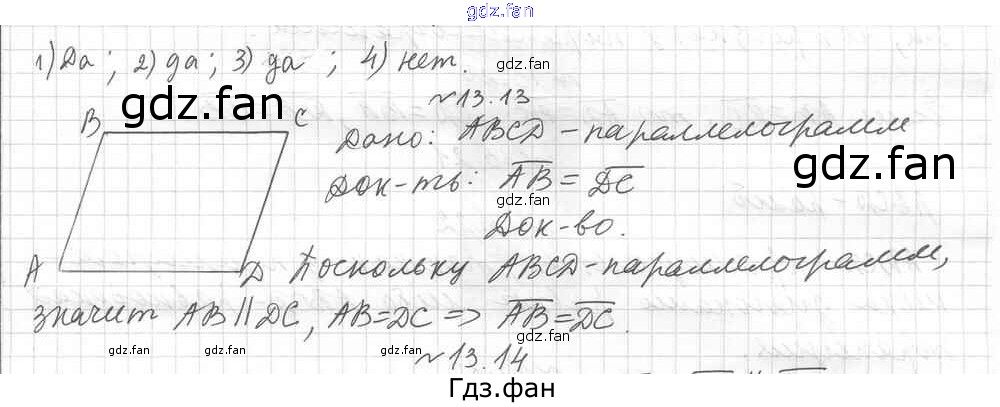 gdz.fan
1) Да; 2) да; 3) да; 4) нет.
gdz.fan
gdz.fan
№13.13
B C
Дано: ABCD - параллелограмм
gdz.fan
Док-ть: AB = DC
gdz.fan
Док-во.
A D Поскольку ABCD - параллелограмм,
gdz.fan
значит AB || DC, AB = DC => AB = DC.
gdz.fan gdz.fan gdz.fan gdz.fan
№13.14
Гдз.фан